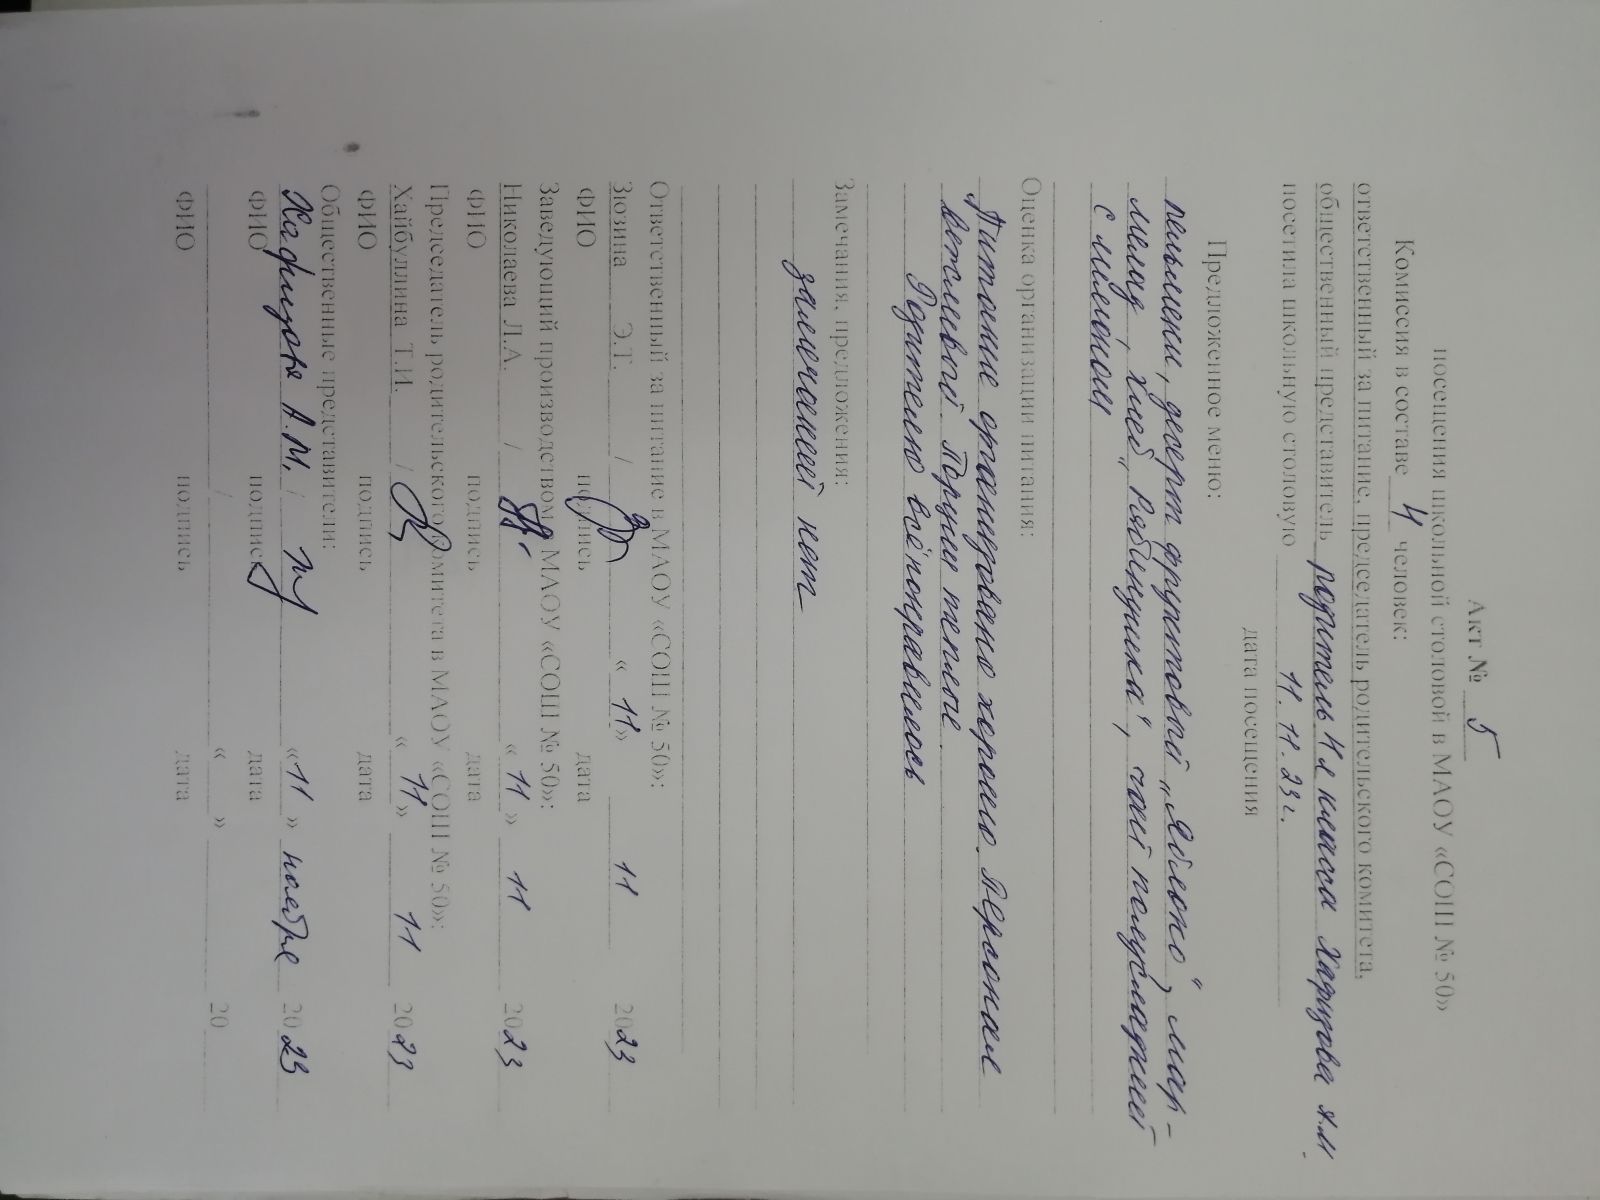 Акт № 5
посещения школьной столовой в МАОУ «СОШ № 50»
Комиссия в составе 4 человек:
ответственный за питание, председатель родительского комитета,
общественный представитель родитель 4 л класса А.М.
посетила школьную столовую 11.11.23 г.
дата посещения
Предложенное меню:
пельмени, десерт фруктовый „Яблоко“, мар-
мелад, хлеб „Рябинушка“, чай полусладкий
с лимоном
Оценка организации питания:
Питание организовано хорошо. Персонал
вежливый. Порции теплые.
Родителю всё понравилось
Замечания, предложения:
замечаний нет
Ответственный за питание в МАОУ «СОШ № 50»:
Зюзина Э.Т. / « 11 » 11 2023
ФИО подпись дата
Заведующий производством МАОУ «СОШ № 50»:
Николаева Л.А. / « 11 » 11 2023
ФИО подпись дата
Председатель родительского комитета в МАОУ «СОШ № 50»:
Хайбуллина Т.И. / « 11 » 11 2023
ФИО подпись дата
Общественные представители:
А.М. / « 11 » ноября 2023
ФИО подпись дата
/ « » 20
ФИО подпись дата